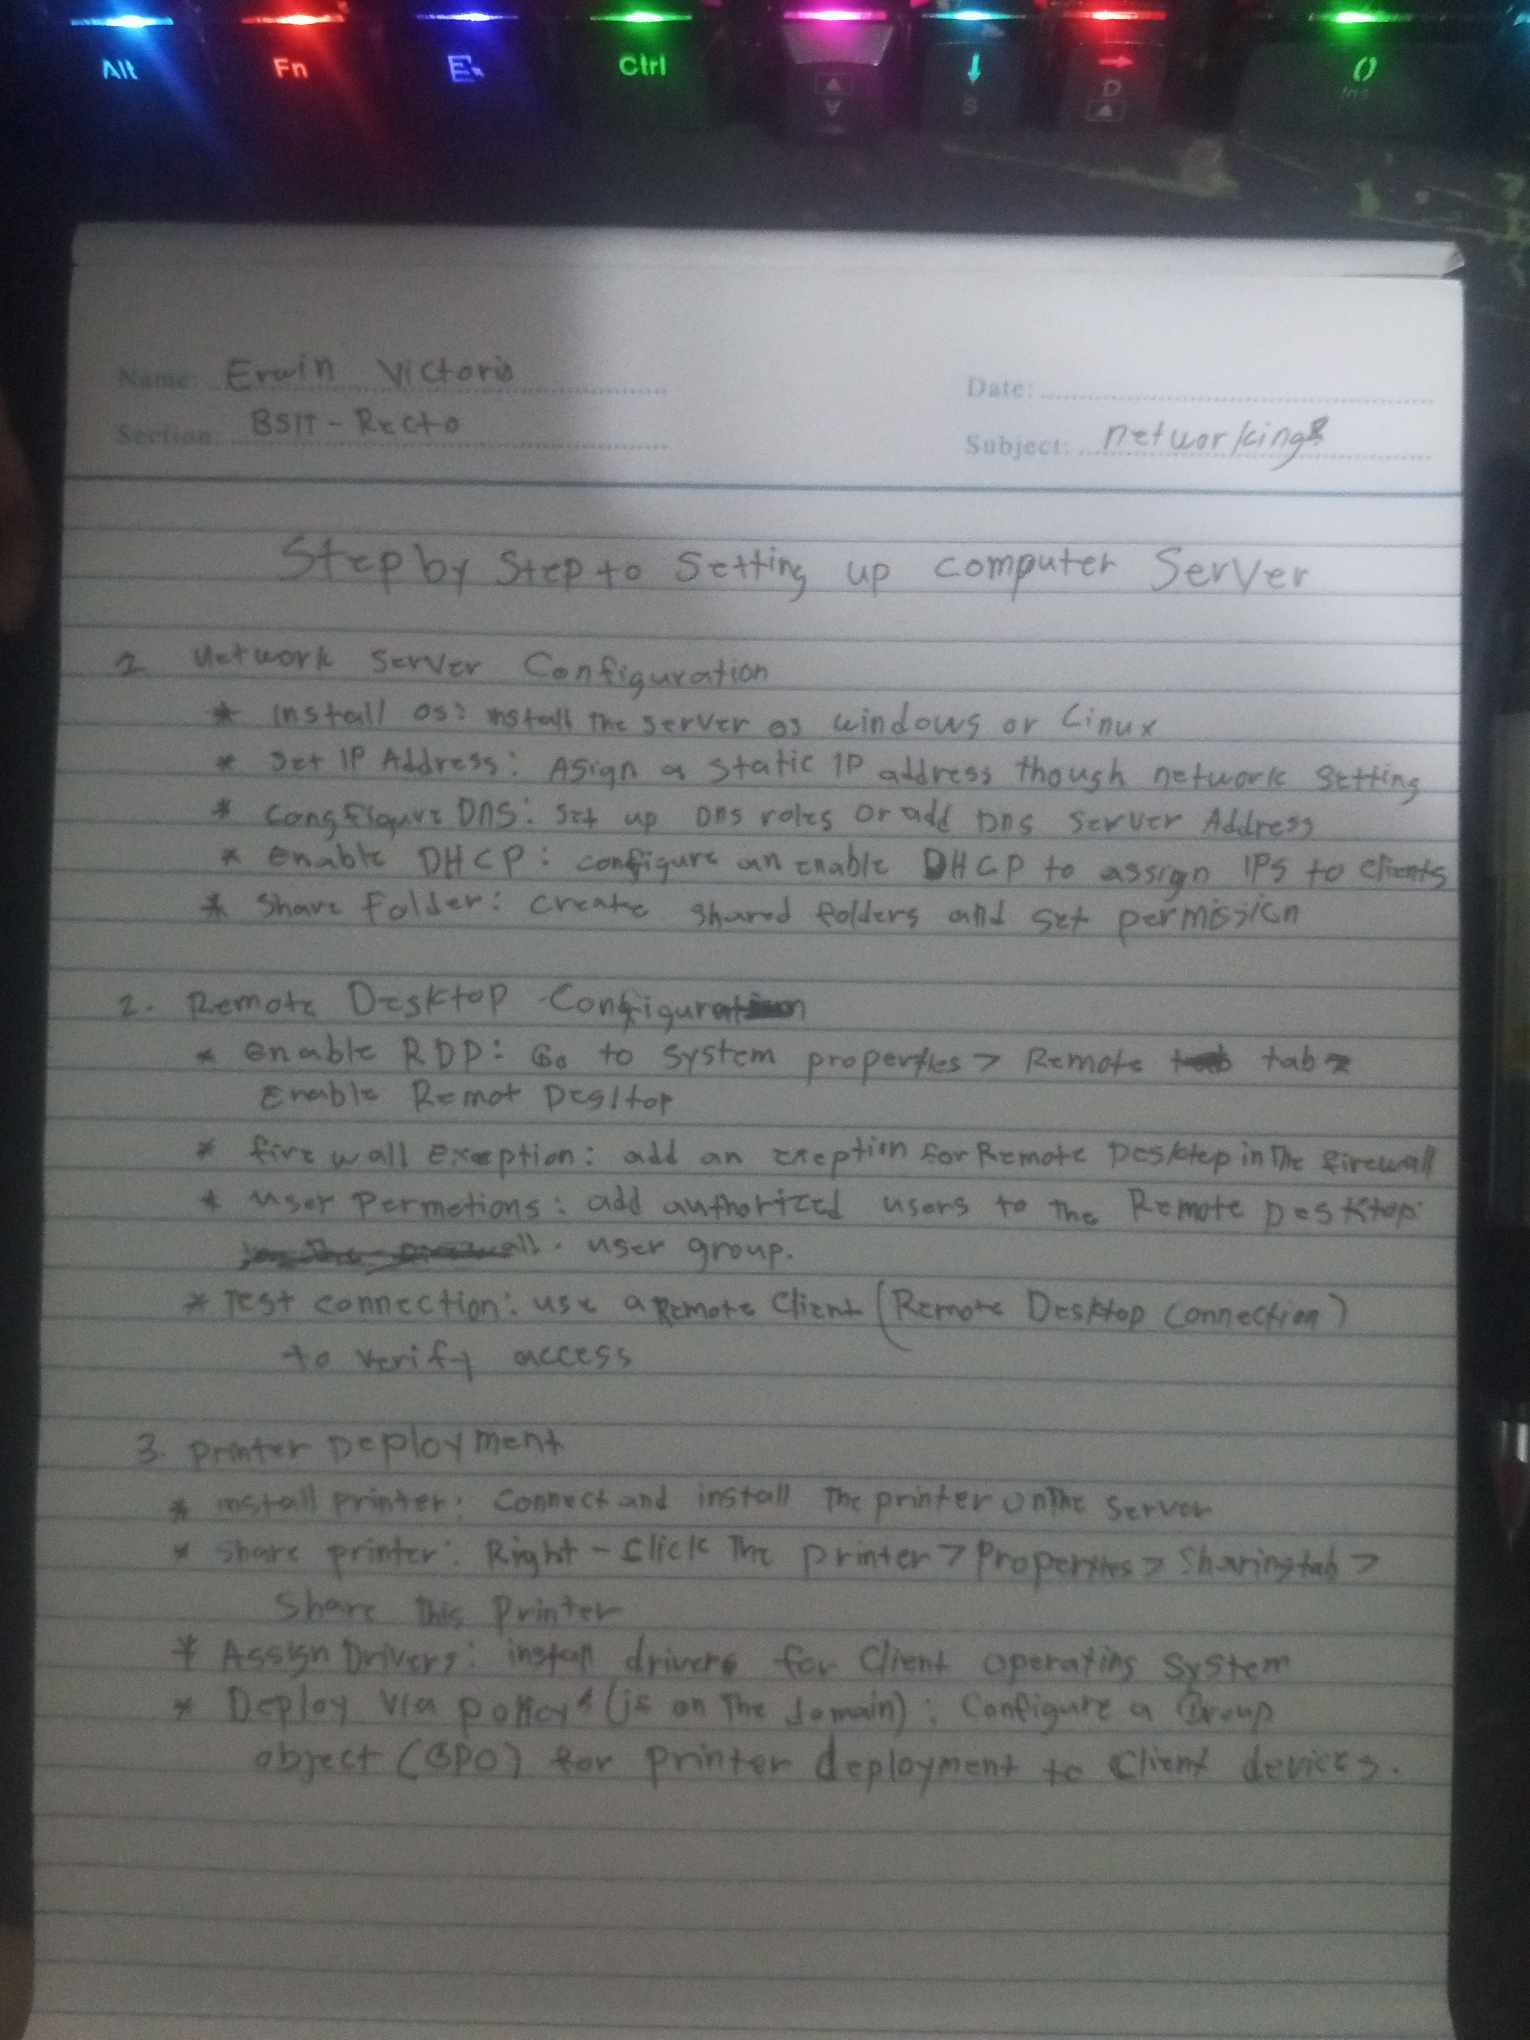 Alt Fn Ctrl S D Ins
Name: Erwin Victorio
Date:
Section: BSIT - Recto
Subject: networking
Step by Step to Setting up computer Server
1. Network Server Configuration
* install os: install the server os windows or Linux
* Set IP Address: Asign a static IP address though network setting
* Congfigure DNS: set up DNS roles or add DNS Server Address
* enable DHCP: configure an enable DHCP to assign IPS to clients
* Share Folder: create shared folders and set permission
2. Remote Desktop Configuration
* enable RDP: Go to system properties > Remote tab >
Enable Remot Desltop
* firewall exception: add an exeption for Remote Desktop in The firewall
* user Permetions: add authorized users to the Remote Desktop
user group.
* Test connection: use a Remote Client (Remote Desktop Connection)
to verify access
3. Printer Deployment
* install printer: Connect and install The printer on The Server
* Share printer: Right - Click The printer > Properties > Sharing tab >
Share This Printer
* Assign Drivers: install drivers for Client operating System
* Deploy via policy (is on The domain): Configure a Group
object (GPO) for printer deployment to Client devices.